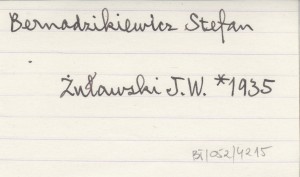 Bernadzikiewicz Stefan
Żuławski J.W. *1935
BŻ/052/4215